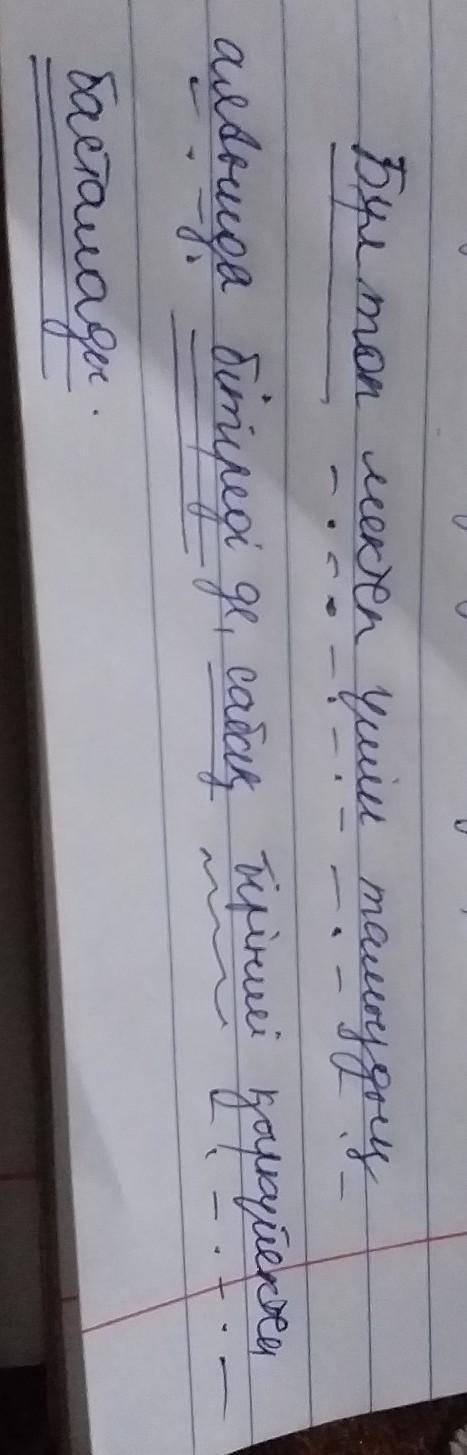 Бұл топ мектеп үшін тамыздың
алғашқы бітіреді де, сабақ бірінші қыркүйекте
басталады.